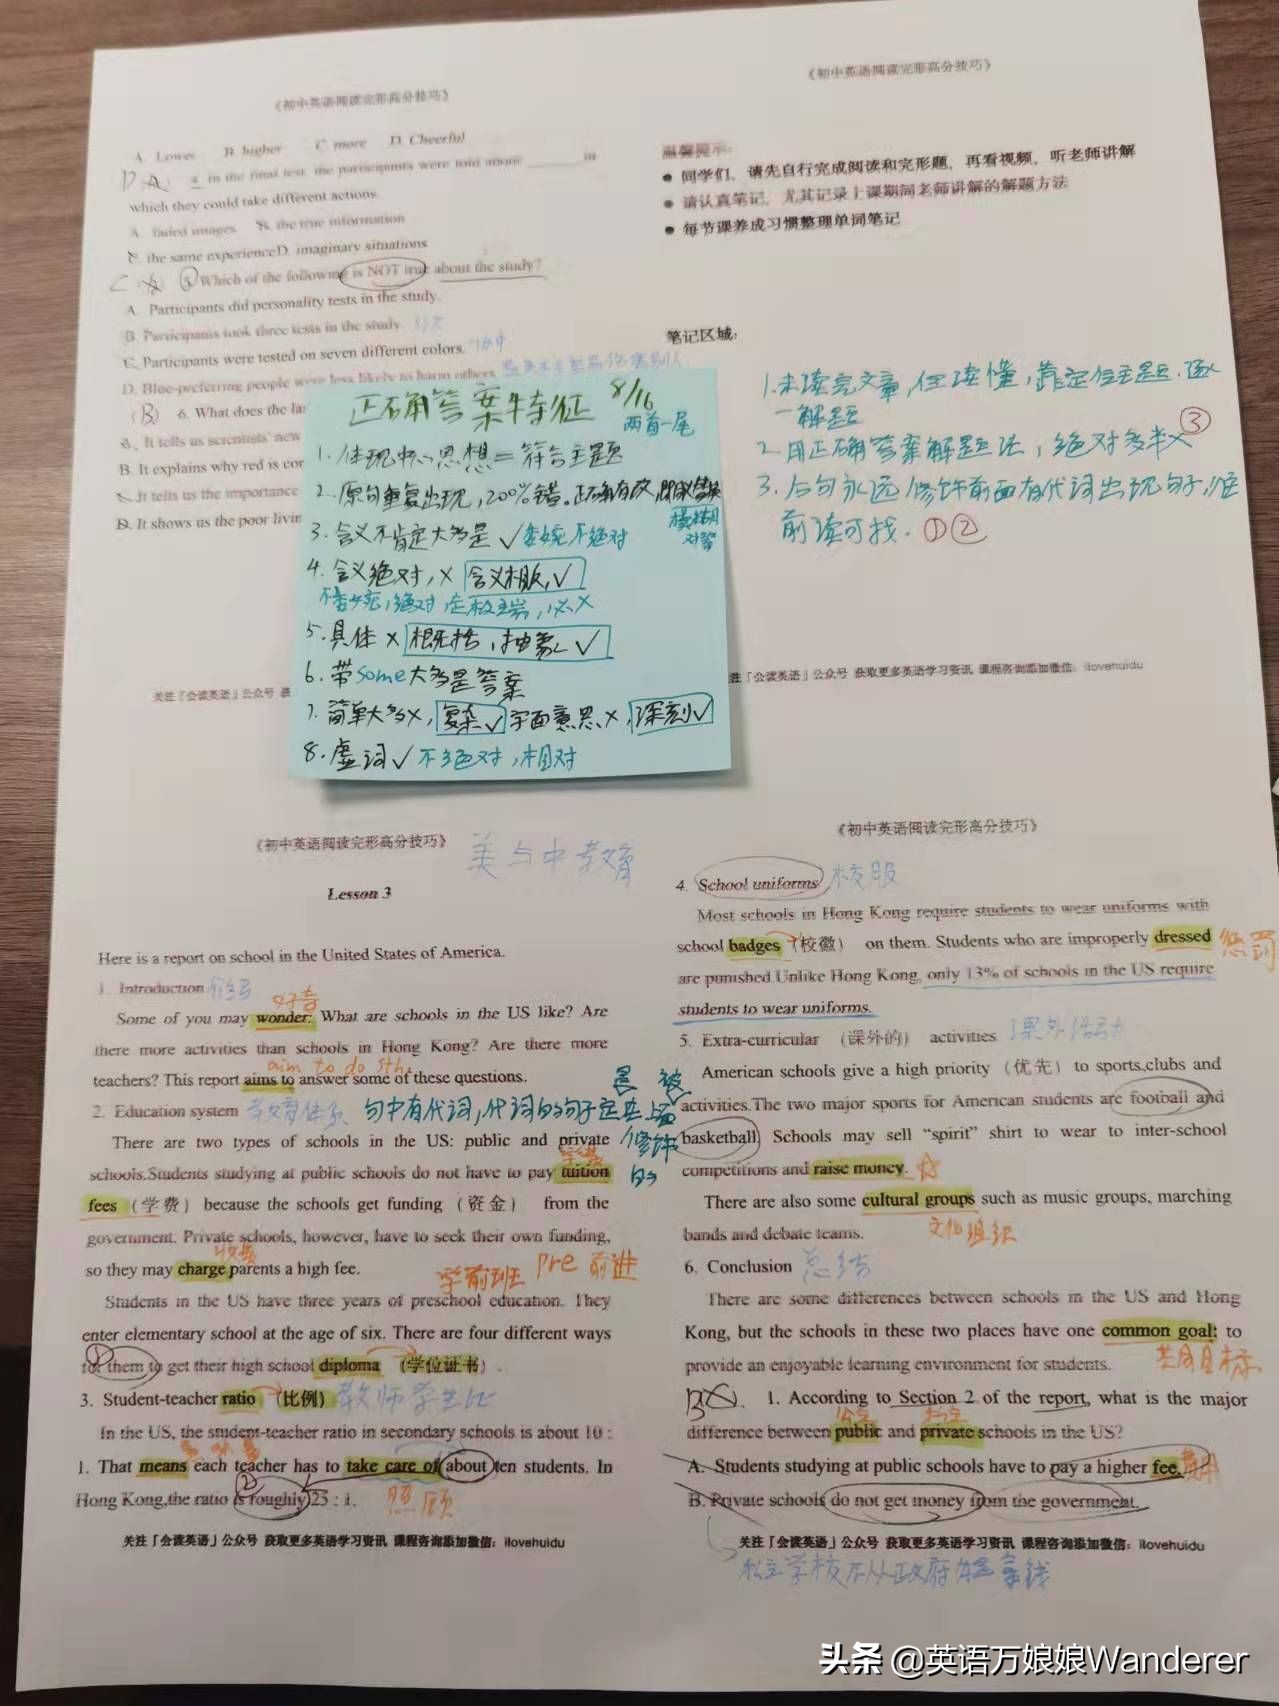 《初中英语阅读完形高分技巧》
A. Lower B. higher C. more D. Cheerful
4. in the final test, the participants were told about ______ in
which they could take different actions.
A. faded images B. the true information
C. the same experience D. imaginary situations
Which of the following is NOT true about the study?
A. Participants did personality tests in the study.
B. Participants took three tests in the study.
C. Participants were tested on seven different colors.
D. Blue-preferring people were less likely to harm others.
(B) 6. What does the las
A. It tells us scientists' new
B. It explains why red is con
C. It tells us the importance
D. It shows us the poor livin
关注「会读英语」公众号 获
正确答案特征 8/16
两首一尾
1. 体现中心思想=符合主题
2. 原句重复出现,200%错。正确有改,同义替换
3. 含义不肯定大多是✓委婉不绝对
4. 含义绝对,× 含义相反,✓
不委婉,绝对,走极端,必×
5. 具体× 概括,抽象✓
6. 带some大多是答案
7. 简单大多×,复杂✓字面意思×,深刻✓
8. 虚词✓不绝对,相对
《初中英语阅读完形高分技巧》
温馨提示:
● 同学们,请先自行完成阅读和完形题,再看视频,听老师讲解
● 请认真笔记,尤其记录上课期间老师讲解的解题方法
● 每节课养成习惯整理单词笔记
笔记区域:
1. 未读完文章,但读懂,靠定位主题,逐
一解题
2. 用正确答案解题法,绝对多半× ③
3. 后句永远修饰前面有代词出现句子,往
前读可找. ①②
关注「会读英语」公众号 获取更多英语学习资讯 课程咨询添加微信: ilovehuidu
《初中英语阅读完形高分技巧》
美与中教育
Lesson 3
Here is a report on school in the United States of America.
1. Introduction 介绍
好奇
Some of you may wonder: What are schools in the US like? Are
there more activities than schools in Hong Kong? Are there more
aim to do sth.
teachers? This report aims to answer some of these questions.
2. Education system 教育体系 句中有代词,代词的句子
There are two types of schools in the US: public and private
修饰
学费
schools.Students studying at public schools do not have to pay tuition
的
fees (学费) because the schools get funding (资金) from the
government. Private schools, however, have to seek their own funding,
收费
so they may charge parents a high fee.
学前班 pre 前进
Students in the US have three years of preschool education. They
enter elementary school at the age of six. There are four different ways
① for them to get their high school diploma (学位证书).
3. Student-teacher ratio (比例) 教师学生比
In the US, the student-teacher ratio in secondary schools is about 10 :
意味着
1. That means each teacher has to take care of about ten students. In
② Hong Kong,the ratio is roughly 25 : 1. 照顾
关注「会读英语」公众号 获取更多英语学习资讯 课程咨询添加微信: ilovehuidu
《初中英语阅读完形高分技巧》
4. School uniforms 校服
Most schools in Hong Kong require students to wear uniforms with
school badges (校徽) on them. Students who are improperly dressed 惩罚
are punished.Unlike Hong Kong, only 13% of schools in the US require
students to wear uniforms.
5. Extra-curricular (课外的) activities 课外活动
American schools give a high priority (优先) to sports,clubs and
activities.The two major sports for American students are football and
basketball. Schools may sell “spirit” shirt to wear to inter-school
competitions and raise money. ☆
There are also some cultural groups such as music groups, marching
bands and debate teams. 文化组织
6. Conclusion 总结
There are some differences between schools in the US and Hong
Kong, but the schools in these two places have one common goal: to
provide an enjoyable learning environment for students. 共同目标
B 1. According to Section 2 of the report, what is the major
公立 私立
difference between public and private schools in the US?
A. Students studying at public schools have to pay a higher fee.
B. Private schools do not get money from the government.
关注「会读英语」公众号 获取更多英语学习资讯 课程咨询添加微信: ilovehuidu
私立学校不从政府拿钱
头条 @英语万娘娘Wanderer